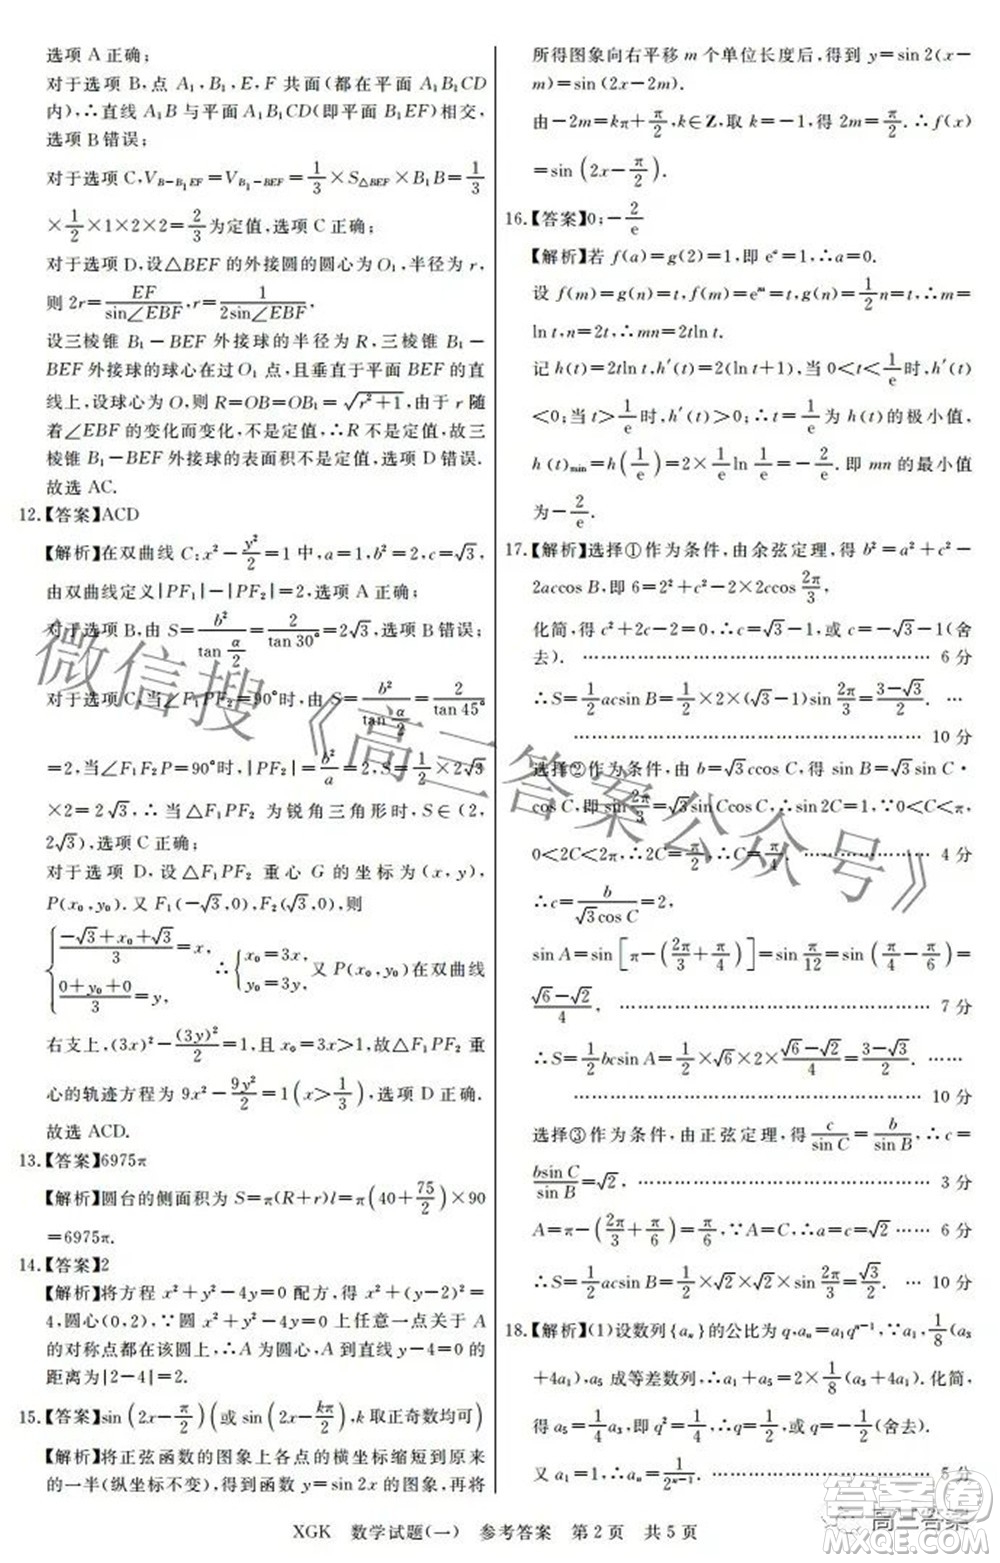 选项 A 正确;
对于选项 B,点 A₁,B₁,E,F 共面(都在平面 A₁B₁CD
内),∴直线 A₁B 与平面 A₁B₁CD(即平面 B₁EF)相交,
选项 B 错误;
对于选项 C,V_{B-B₁EF}=V_{B₁-BEF}=1/3×S_{△BEF}×B₁B=1/3
×1/2×1×2×2=2/3为定值,选项 C 正确;
对于选项 D,设△BEF 的外接圆的圆心为 O₁,半径为 r,
则 2r=EF/sin∠EBF,r=1/2sin∠EBF,
设三棱锥 B₁-BEF 外接球的半径为 R,三棱锥 B₁-
BEF 外接球的球心在过O₁ 点,且垂直于平面 BEF 的直
线上,设球心为 O,则 R=OB=OB₁=√(r²+1),由于 r 随
着∠EBF 的变化而变化,不是定值,∴R 不是定值,故三
棱锥 B₁-BEF 外接球的表面积不是定值,选项 D 错误.
故选 AC.
12.【答案】ACD
【解析】在双曲线 C:x²-y²/2=1 中,a=1,b²=2,c=√3,
由双曲线定义|PF₁|-|PF₂|=2,选项 A 正确;
对于选项 B,由 S=b²/tan(α/2)=2/tan30°=2√3,选项 B 错误;
对于选项 C,当∠F₁PF₂=90°时,由 S=b²/tan(α/2)=2/tan45°
=2,当∠F₁F₂P=90°时,|PF₂|=b²/a=2,此时 S=1/2×2√3
×2=2√3,∴当△F₁PF₂ 为锐角三角形时,S∈(2,
2√3),选项 C 正确;
对于选项 D,设△F₁PF₂ 重心 G 的坐标为(x,y),
P(x₀,y₀).又 F₁(-√3,0),F₂(√3,0),则
{(-√3+x₀+√3)/3=x, (0+y₀+0)/3=y, ∴{x₀=3x, y₀=3y, 又 P(x₀,y₀)在双曲线
右支上,(3x)²-(3y)²/2=1,且 x₀=3x>1,故△F₁PF₂ 重
心的轨迹方程为 9x²-9y²/2=1(x>1/3),选项 D 正确.
故选 ACD.
13.【答案】6975π
【解析】圆台的侧面积为 S=π(R+r)l=π(40+75/2)×90
=6975π.
14.【答案】2
【解析】将方程 x²+y²-4y=0 配方,得 x²+(y-2)²=
4,圆心(0,2),∵圆 x²+y²-4y=0 上任意一点关于 A
的对称点都在该圆上,∴A 为圆心,到直线 y-4=0 的
距离为|2-4|=2.
15.【答案】sin(2x-π/2)(或 sin(2x-kπ/2),k 取正奇数均可)
【解析】将正弦函数的图象上各点的横坐标缩短到原来
的一半(纵坐标不变),得到函数 y=sin 2x 的图象,再将
所得图象向右平移 m 个单位长度后,得到 y=sin 2(x-
m)=sin (2x-2m).
由-2m=kπ+π/2,k∈Z,取 k=-1,得 2m=π/2.∴f(x)
=sin(2x-π/2).
16.【答案】0;-2/e
【解析】若 f(a)=g(2)=1,即 eᵃ=1,∴a=0.
设 f(m)=g(n)=t,f(m)=eᵐ=t,g(n)=1/2n=t,∴m=
ln t,n=2t,∴mn=2tln t.
记 h(t)=2tln t,h′(t)=2(ln t+1),当 0<t<1/e时,h′(t)
<0;当 t>1/e时,h′(t)>0;∴t=1/e为 h(t)的极小值,
h(t)min=h(1/e)=2×1/e ln 1/e=-2/e.即 mn 的最小值
为-2/e.
17.【解析】选择①作为条件,由余弦定理,得 b²=a²+c²-
2accos B,即 6=2²+c²-2×2×ccos 2π/3,
化简,得 c²+2c-2=0,∴c=√3-1,或 c=-√3-1(舍
去). ………………………… 6 分
∴S=1/2acsin B=1/2×2×(√3-1)sin 2π/3=(3-√3)/2. …
………………………… 10 分
选择②作为条件,由 b=√3ccos C,得 sin B=√3sin C·
cos C,即 sin 2π/3=√3sin Ccos C,∴sin 2C=1.∵0<C<π,
0<2C<2π,∴2C=π/2,∴C=π/4. ………… 4 分
∴c=b/(√3cos C)=2,
sin A=sin[π-(2π/3+π/4)]=sin π/12=sin(π/4-π/6)=
(√6-√2)/4, ………………………… 7 分
∴S=1/2bcsin A=1/2×√6×2×(√6-√2)/4=(3-√3)/2. ……
………………………… 10 分
选择③作为条件,由正弦定理,得 c/sin C=b/sin B,∴c=
bsin C/sin B=√2. ………………………… 3 分
A=π-(2π/3+π/6)=π/6,∵A=C,∴a=c=√2 …… 6 分
∴S=1/2acsin B=1/2×√2×√2×√3/2=√3/2. … 10 分
18.【解析】(1)设数列{aₙ}的公比为 q,aₙ=a₁qⁿ⁻¹,∵a₁,1/8(a₃
+4a₁),a₅ 成等差数列,∴a₁+a₅=2×1/8(a₃+4a₁).化简,
得 a₅=1/4a₃,∴q²=1/4,∴q=1/2,或 q=-1/2(舍去).
又 a₁=1,∴aₙ=1/2ⁿ⁻¹. ………………………… 5 分
XGK 数学试题(一) 参考答案 第 2 页 共 5 页
微信搜《高三答案公众号》
高三答案
答案圈
MXQE.COM